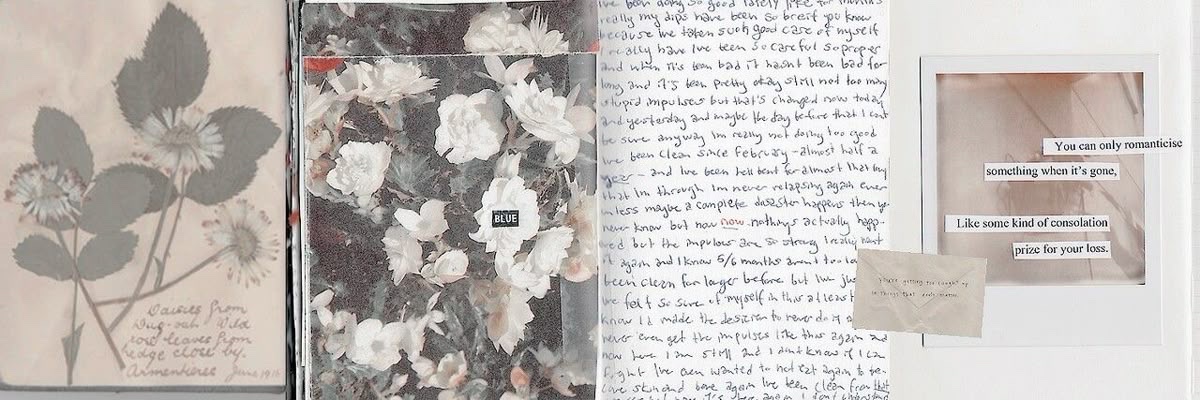 Daisies from
Dug-out Wild
rose leaves from
hedge close by.
Armentieres June 1916
BLUE
ive been doing so good lately like for months
really my dips have been so breif you know
because ive taken such good care of myself
I really have Ive been so careful so proper
and when it's been bad it hasnt been bad for
long and it's been pretty okay still not too many
stupid impulses but that's changed now today
and yesterday and maybe the day before that I cant
be sure anyway Im really not doing too good
Ive been clean since February - almost half a
year - and Ive been hell bent for almost that long
that im through im never relapsing again ever
unless maybe a complete disaster happens then yo
never know but now now nothings actually happ-
ed but the impulses are so strong I really want
it again and I know 5/6 months arent too lo
been clean far longer before but Im jus
ive felt so sure of myself in this at least
know Id made the desicion to never do
never even get the impulses like this again and
now here I am still and I dont know if I can
fight Ive even wanted to not eat again to be-
come skin and bone again Ive been clean from that
You can only romanticise
something when it's gone,
Like some kind of consolation
prize for your loss.
you're getting too caught up
in things that don't matter.